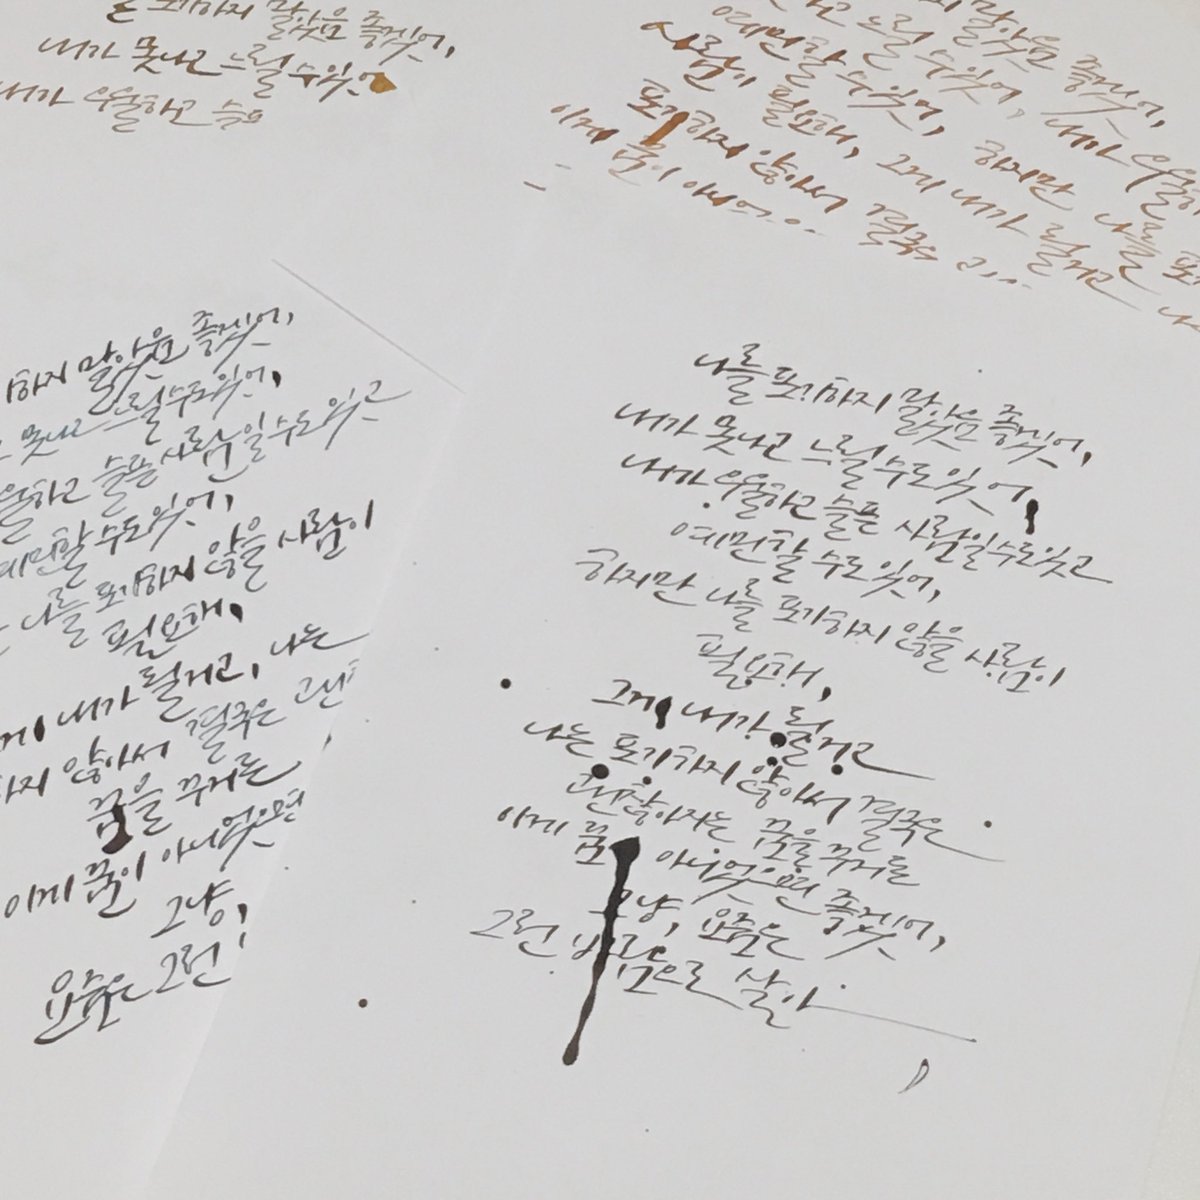 포기하지 말았음 좋겠어,
내가 못나고 느낄 수 있어
내가 우울하고 슬프
말았음 좋겠어,
느낄 수 있어, 내가 우울하
예민할 수 있어, 하지만 나를 포
사람이 필요해, 그게 내가 될거고 나
포기하지 않아서
이게 꿈이 아
하지 말았음 좋겠어,
못나고 느낄 수도 있어,
울하고 슬픈 사람일 수도 있고
예민할 수도 있어,
나를 포기하지 않을 사람이
필요해,
게, 내가 될거고, 나는
하지 않아서 결국은
꿈을 꾸거든
이게 꿈이 아니었으면
그냥,
요즘은 그런
나를 포기하지 말았음 좋겠어,
내가 못나고 느낄 수도 있어,
내가 우울하고 슬픈 사람일 수도 있고
예민할 수도 있어,
하지만 나를 포기하지 않을 사람이
필요해,
그게, 내가 될거고
나는 포기하지 않아서 결국은
괜찮아지는 꿈을 꾸거든
이게 꿈이 아니었으면 좋겠어,
그냥, 요즘은
그런 바람으로 살아